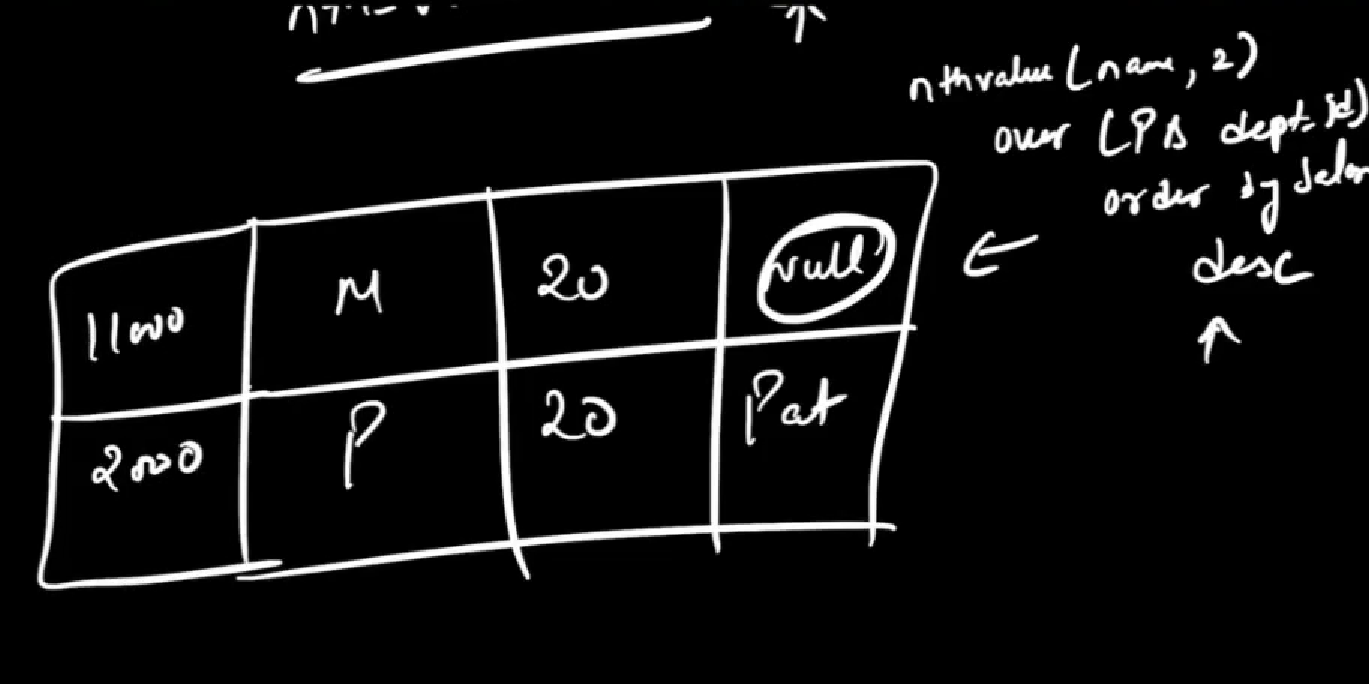 nthvalue (name, 2)
over (PB dept_id)
order by
desc
11000 M 20 null
2000 P 20 Pat